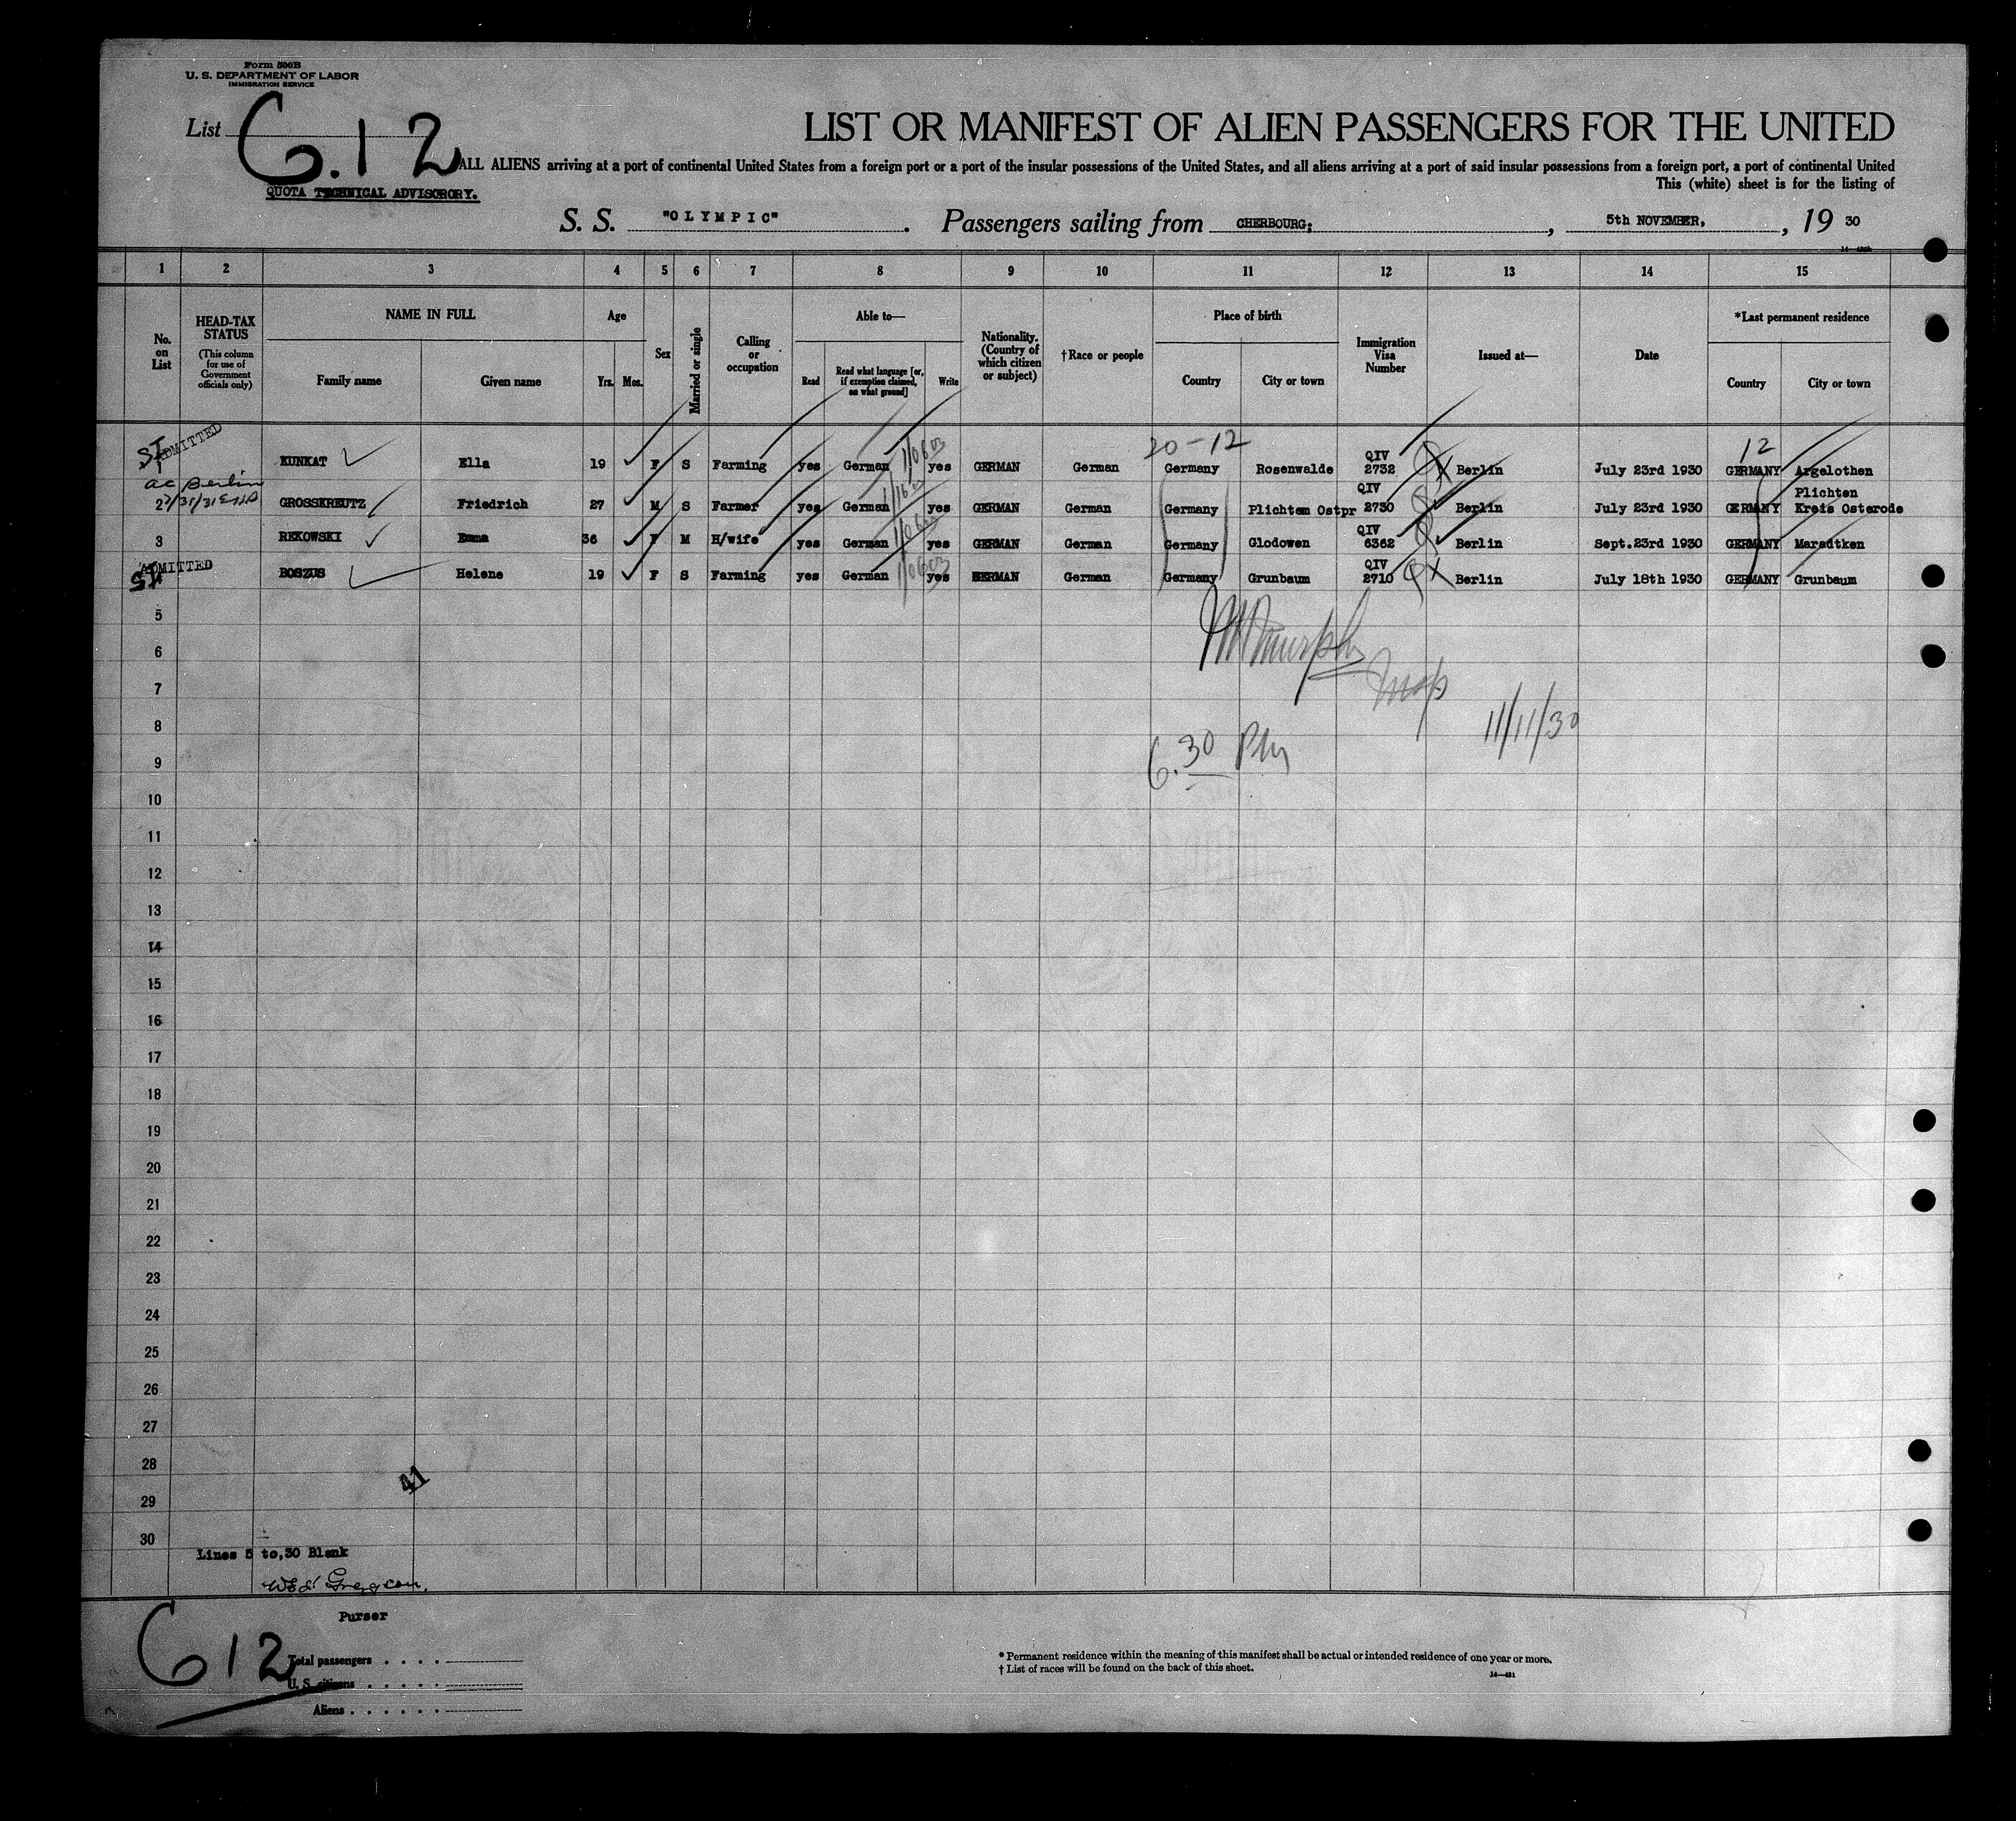 Form 500B
U. S. DEPARTMENT OF LABOR
IMMIGRATION SERVICE
List G.12
LIST OR MANIFEST OF ALIEN PASSENGERS FOR THE UNITED
ALL ALIENS arriving at a port of continental United States from a foreign port or a port of the insular possessions of the United States, and all aliens arriving at a port of said insular possessions from a foreign port, a port of continental United
QUOTA TECHNICAL ADVISORORY.
This (white) sheet is for the listing of
S. S. "OLYMPIC". Passengers sailing from CHERBOURG; , 5th NOVEMBER, , 19 30
1 2 3 4 5 6 7 8 9 10 11 12 13 14 15
No. on List
HEAD-TAX STATUS (This column for use of Government officials only)
NAME IN FULL Family name Given name
Age Yrs. Mos.
Sex
Married or single
Calling or occupation
Able to— Read Read what language [or, if exemption claimed, on what ground] Write
Nationality. (Country of which citizen or subject)
†Race or people
Place of birth Country City or town
Immigration Visa Number
Issued at—
Date
*Last permanent residence Country City or town
20-12 12
ADMITTED KUNKAT Ella 19 F S Farming yes German yes GERMAN German Germany Rosenwalde QIV 2732 Berlin July 23rd 1930 GERMANY Argelothen
ac Berlin
2 GROSSKREUTZ Friedrich 27 M S Farmer yes German yes GERMAN German Germany Plichtem Ostpr QIV 2730 Berlin July 23rd 1930 GERMANY Plichten Kreis Osterode
3 REKOWSKI Emma 36 F M H/wife yes German yes GERMAN German Germany Glodowen QIV 6362 Berlin Sept.23rd 1930 GERMANY Maradtken
ADMITTED BOSZUS Helene 19 F S Farming yes German yes GERMAN German Germany Grunbaum QIV 2710 Berlin July 18th 1930 GERMANY Grunbaum
5
6
7
8 11/11/30
9 6.30 PM
10
11
12
13
14
15
16
17
18
19
20
21
22
23
24
25
26
27
28
41
29
30
Lines 5 to,30 Blank
Purser
G 12
Total passengers . . . .
U. S. citizens . . . . .
Aliens . . . . . .
* Permanent residence within the meaning of this manifest shall be actual or intended residence of one year or more.
† List of races will be found on the back of this sheet.
14—431